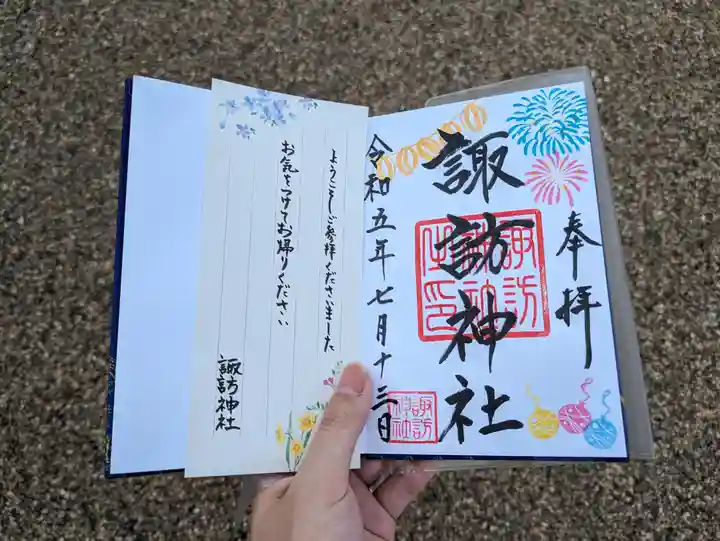 奉拝
諏訪神社
令和五年七月十三日
諏訪
神社
ようこそご参拝くださいました
お気をつけてお帰りください
諏訪神社